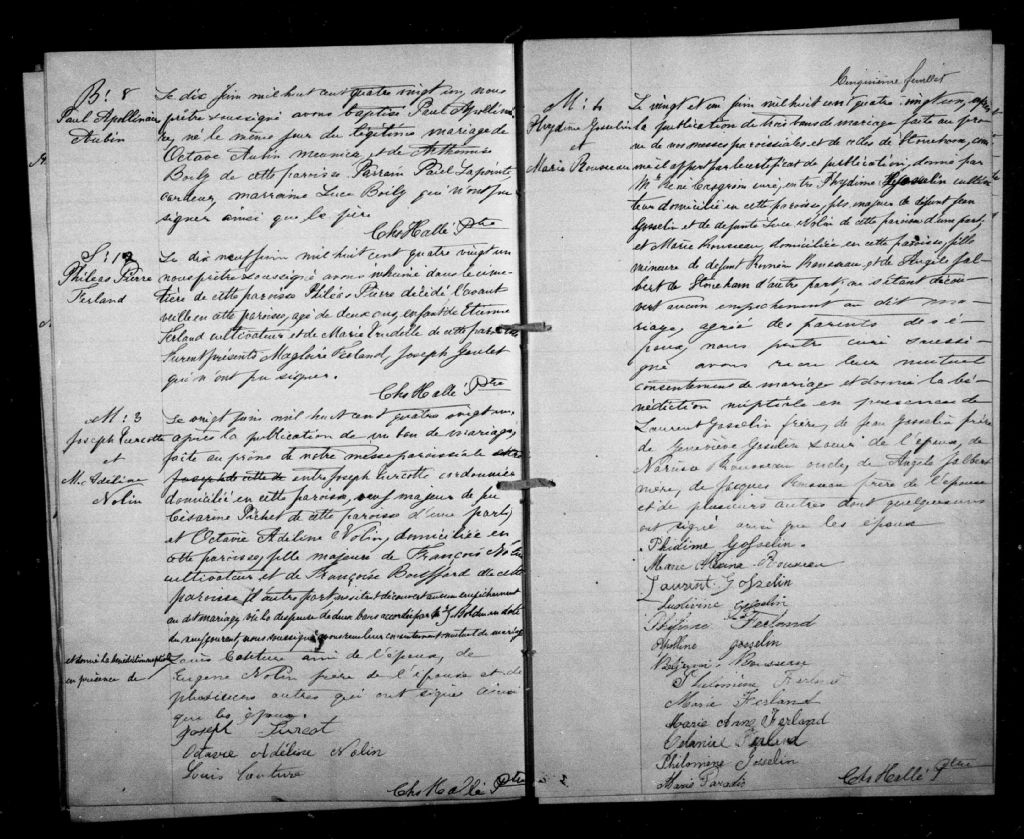 B: 8
Paul Apollinaire
Aubin
Le dix Juin mil huit cent quatre vingt un, nous
prêtre soussigné avons baptisé Paul Apollinai
re, né le même jour du légitime mariage de
Octave Aubin meunier et de Arthémise
Boily de cette paroisse. Parrain Paul Lapointe
cardeur, marraine Luce Boily qui n'ont pu
signer ainsi que le père
Chs Hallé Ptre
S: 12
Philéas Pierre
Ferland
Le dix neuf juin mil huit cent quatre vingt un
nous prêtre soussigné avons inhumé dans le cime-
tière de cette paroisse Philéas Pierre décédé l'avant
veille en cette paroisse, agé de deux enfant de Etienne
Ferland cultivateur et de Marie Trudelle de cette paroisse
Furent présents Magloire Ferland, Joseph Goulet
qui n'ont pu signer.
Chs Hallé Ptre
M: 3
Joseph Turcotte
et
M. Adéline
Nolin
Le vingt juin mil huit cent quatre vingt un,
après la publication de un ban de mariage,
faite au prône de notre messe paroissiale
entre Joseph Turcotte cordonnier
domicilié en cette paroisse, veuf majeur de feu
Césarine Pichet de cette paroisse d'une part,
et Octavie Adeline Nolin, domiciliée en
cette paroisse, fille majeure de François Nolin
cultivateur et de Françoise Bouffard de cette
paroisse d'autre part ne s'étant découvert aucun empêchement
au dit mariage vu la dispense de deux bans accordée par Bolduc en date
du neuf courant, nous soussigné avons reçu leur consentement mutuel de mariage
et donné la bénédiction nuptiale
en présence de
Louis Couture ami de l'époux, de
Eugène Nolin frère de l'épouse et de
plusieurs autres qui ont signé ainsi
que les époux.
Joseph Turcot
Octavie Adéline Nolin
Louis Couture
Chs Hallé Ptre
Cinquième feuillet
M: 4
Phydime Gosselin
et
Marie Rousseau
Le vingt et un juin mil huit cent quatre vingt un, après
la publication de trois bans de mariage faite au prô
ne de nos messes paroissiales et de celles de Stoneham, com
me il appert par le certificat de publication, donné par
Mr René Casgrain curé, entre Phydime Gosselin cultiva
teur domicilié en cette paroisse, fils majeur de défunt Jean
Gosselin et de defunte Luce Nolin de cette paroisse d'une part,
et Marie Rousseau, domiciliée en cette paroisse, fille
mineure de défunt Rousseau, et de Angèle Jal-
bert de Stoneham d'autre part; ne s'étant décou
vert aucun empêchement au dit ma-
riage, agréé des parents des é-
poux, nous prêtre curé soussi-
gné avons reçu leur mutuel
consentement de mariage et donné la bé-
nédiction nuptiale en présence de
Laurent Gosselin frère, de Jean Gosselin frère
de Geneviève Gosselin soeur de l'époux, de
Narcisse Rousseau oncle, de Angèle Jalbert
mère, de Jacques Rousseau frère de l'épouse
et de plusieurs autres dont quelques uns
ont signé ainsi que les époux
Phidime Gosselin.
Marie Rousseau
Laurent Gosselin
Ludivine Gosselin
Ferland
Apolline Gosselin
Rousseau
Philomène Ferland
Marie Ferland
Marie Anne Ferland
Ferland
Philomène Gosselin
Marie Paradis
Chs Hallé Ptre